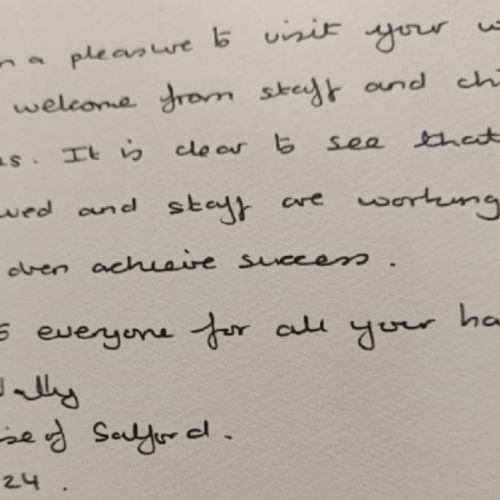 n a pleasure to visit your w
welcome from staff and chi
s. It is clear to see that
ved and staff are working
dren achieve success.
s everyone for all your ha
ally
ise of Salford.
24.